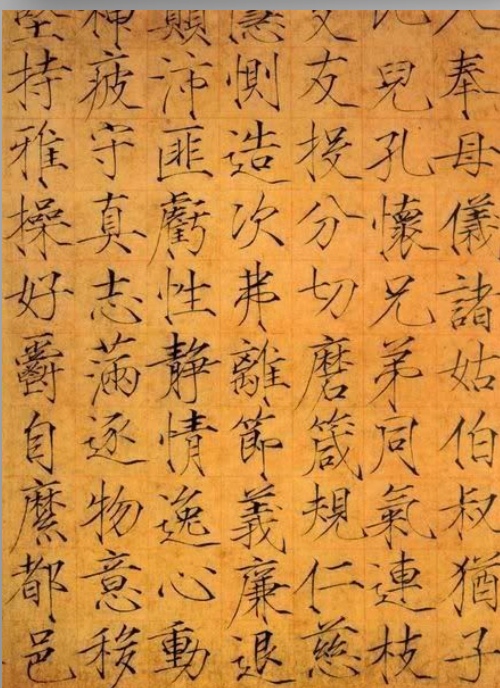 入奉母儀諸姑伯叔猶子
比兒孔懷兄弟同氣連枝
交友投分切磨箴規仁慈
隱惻造次弗離節義廉退
顛沛匪虧性靜情逸心動
神疲守真志滿逐物意移
堅持雅操好爵自縻都邑